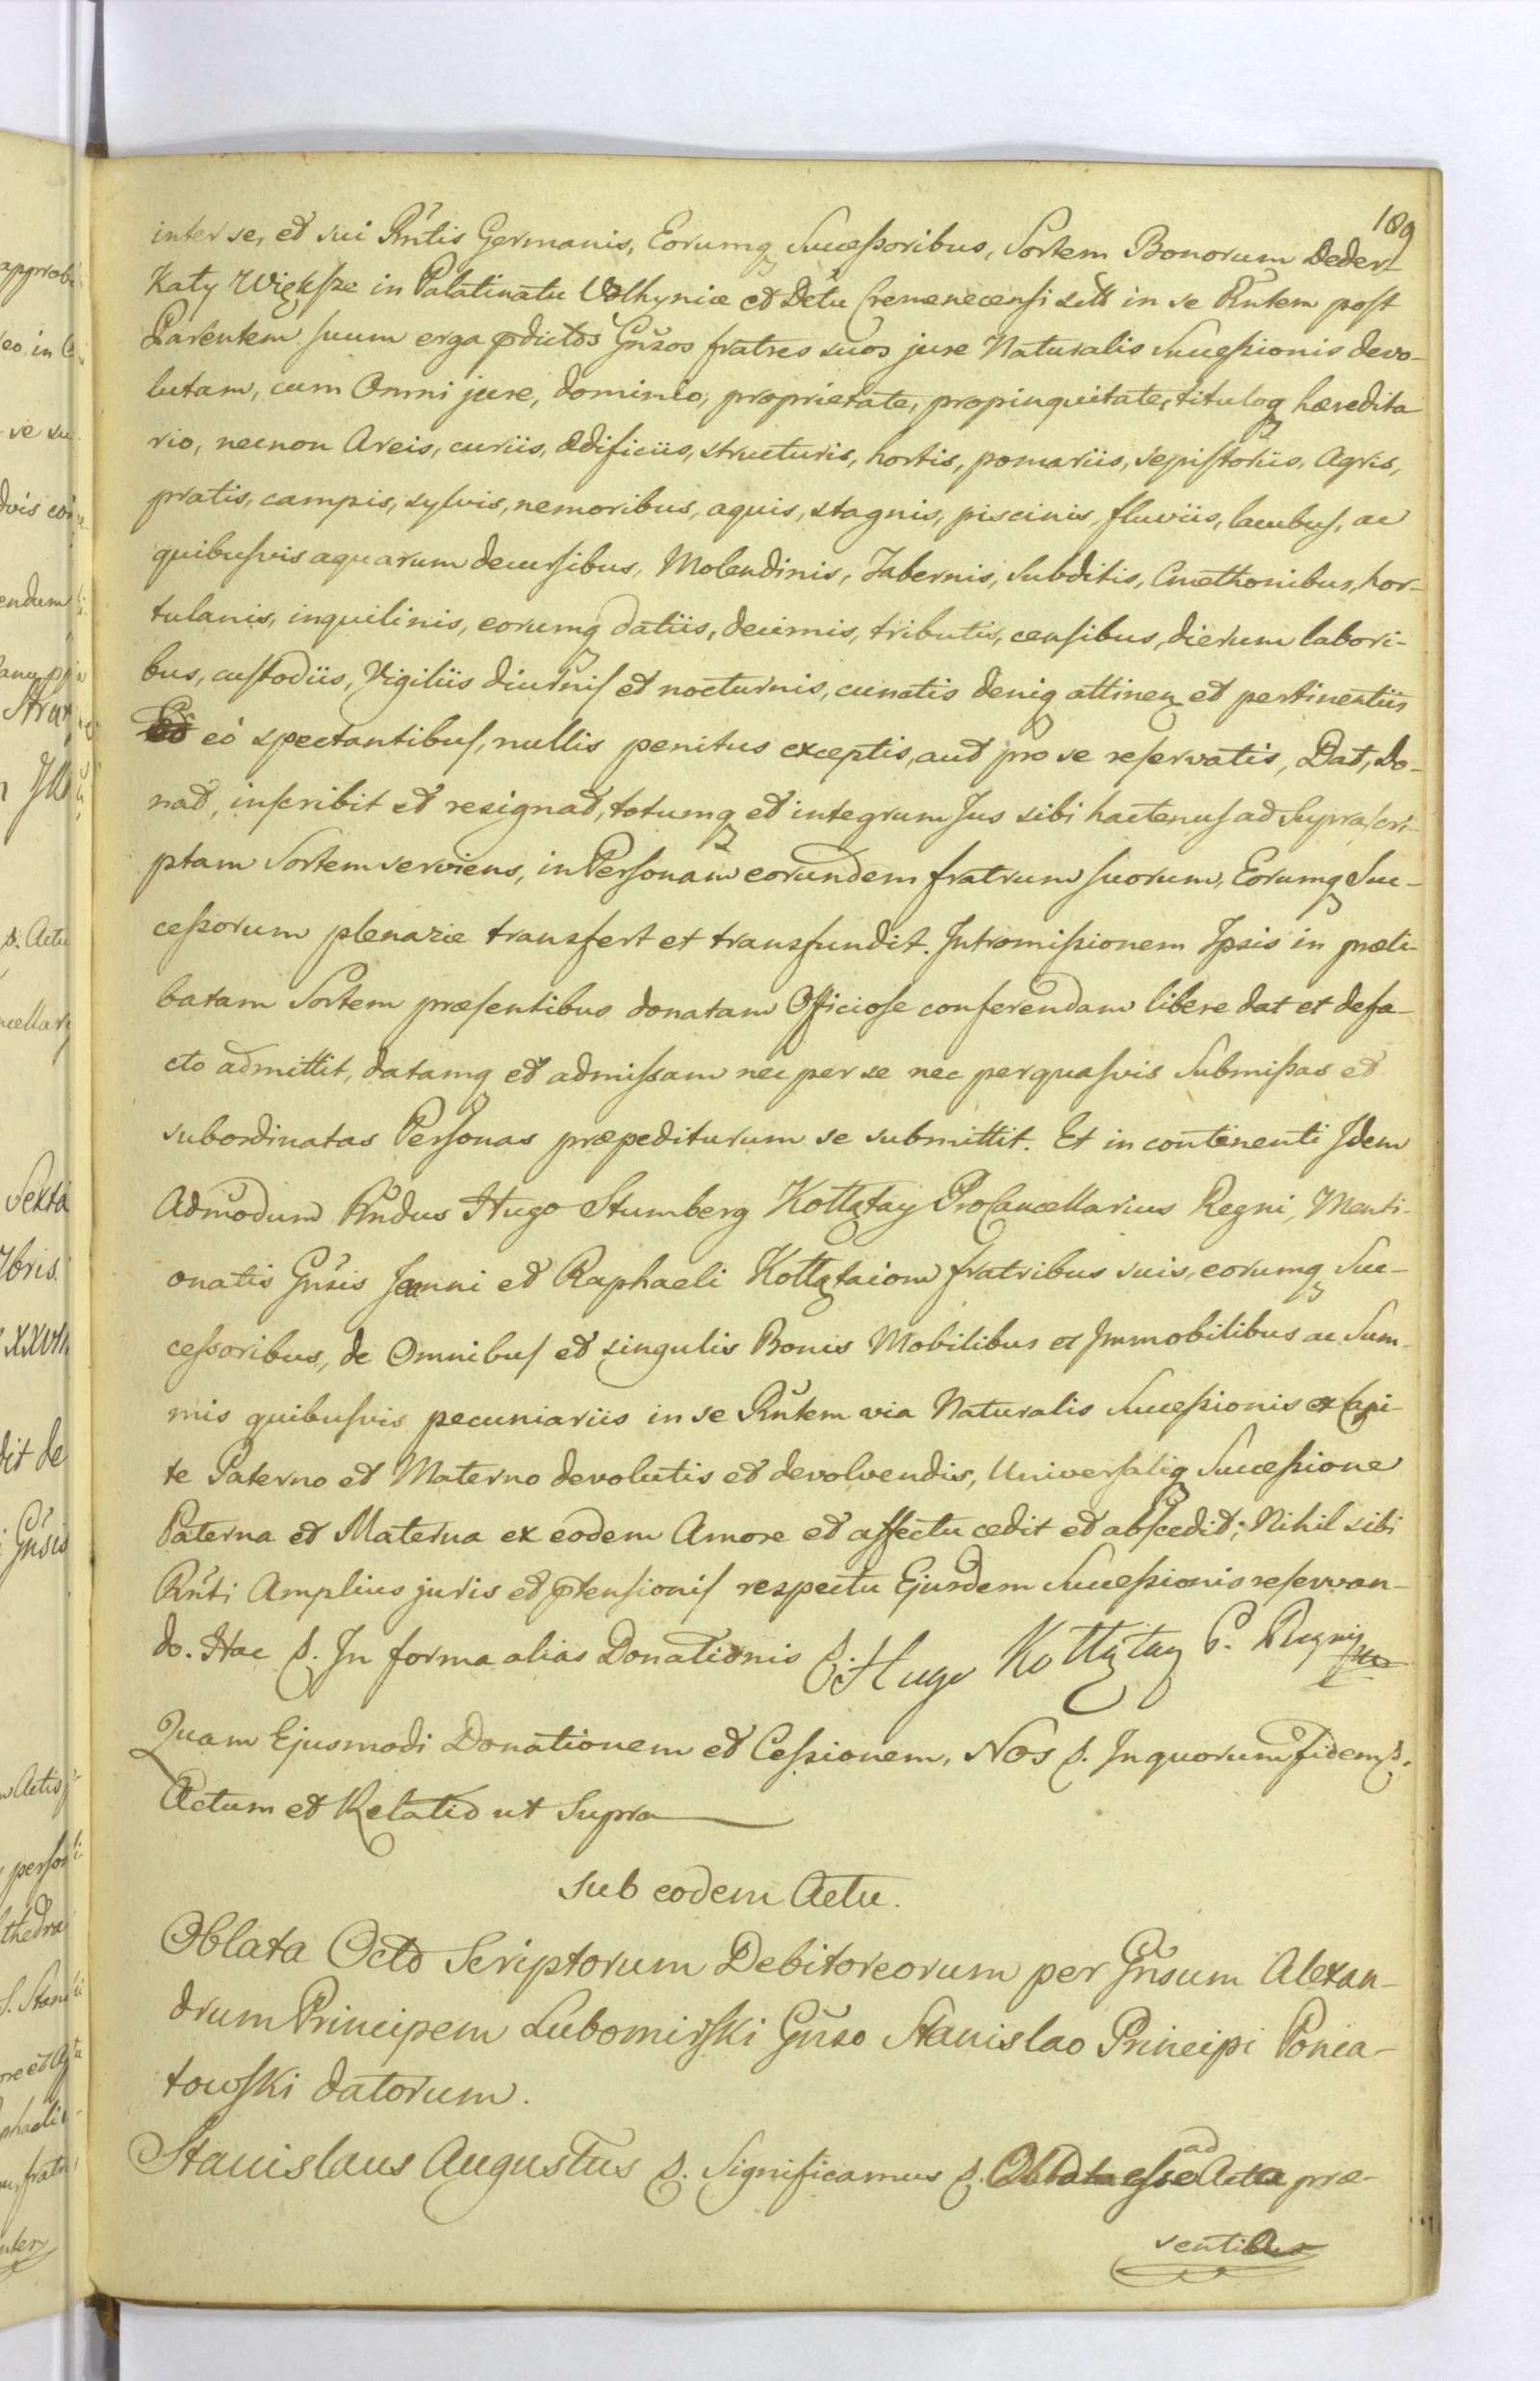 189
inter se, et sui Rñtis Germanis, Eorumq Successoribus, Sortem Bonorum Deder-
Kały Większe in Palatinatu Volhyniæ et Dċtu Cremenecensi sitt in se Rñtem post
Parentem suum erga pdictos Gñsos fratres suos jure Naturalis Successionis devo-
lutam, cum Omni jure, dominio, proprietate, propinquitate, tituloq hæredita
rio, necnon Areis, curiis, ædificiis, structuris, hortis, pomariis, sepistoriis, Agris,
pratis, campis, sylvis, nemoribus, aquis, stagnis, piscinis, fluviis, lacubus, ac
quibusvis aquarum decursibus, Molendinis, Tabernis, Subditis, Cmethonibus, hor-
tulanis, inquilinis, eorumq datiis, decimis, tributis, censibus, dierum labori-
bus, custodiis, Vigiliis diurnis et nocturnis, cunctis deniq attinen et pertinentiis
eó spectantibus, nullis penitus exceptis, aut pro se reservatis, Dat, do-
nat, inscribit et resignat, totumq et integrum Jus sibi hactenus ad Suprascri-
ptam Sortem serviens, in Personam eorundem fratrum suorum, Eorumq Suc-
cessorum plenarie transfert et transfundit. Intromissionem Ipsis in præli-
batam Sortem præsentibus donatam Officiose conferendam libere dat et defa-
cto admittit, datamq et admissam nec per se nec per quasvis Submissas et
subordinatas Personas præpediturum se submittit. Et in continenti Idem
Admodum Rñdus Hugo Stumberg Kołłątay ProCancellarius Regni, Menti-
onatis Gñsis Joanni et Raphaeli Kołłątaiom fratribus suis, eorumq Suc-
cessoribus, de Omnibus et singulis Bonis Mobilibus et Immobilibus ac Sum-
mis quibusvis pecuniariis in se Rñtem via Naturalis Successionis ex Capi-
te Paterno et Materno devolutis et devolvendis, Universaliq Successione
Paterna et Materna ex eodem Amore et affectu cedit et abscedit; Nihil sibi
Rñti Amplius juris et ptensionis respectu Ejusdem Successionis reservan-
do. Hac p. In forma alias Donationis p. Hugo Kołłątay P. Regni
Quam Ejusmodi Donationem et Cessionem, Nos p. In quorum fidem p.
Actum et Relatio ut Supra
Sub eodem Actu.
Oblata Octo Scriptorum Debitoreorum per Gñsum Alexan-
drum Principem Lubomirski Gñso Stanislao Principi Ponia-
towski datorum.
Stanislaus Augustus p. Significamus p. Oblata esse ad Acta præ-
sentibus